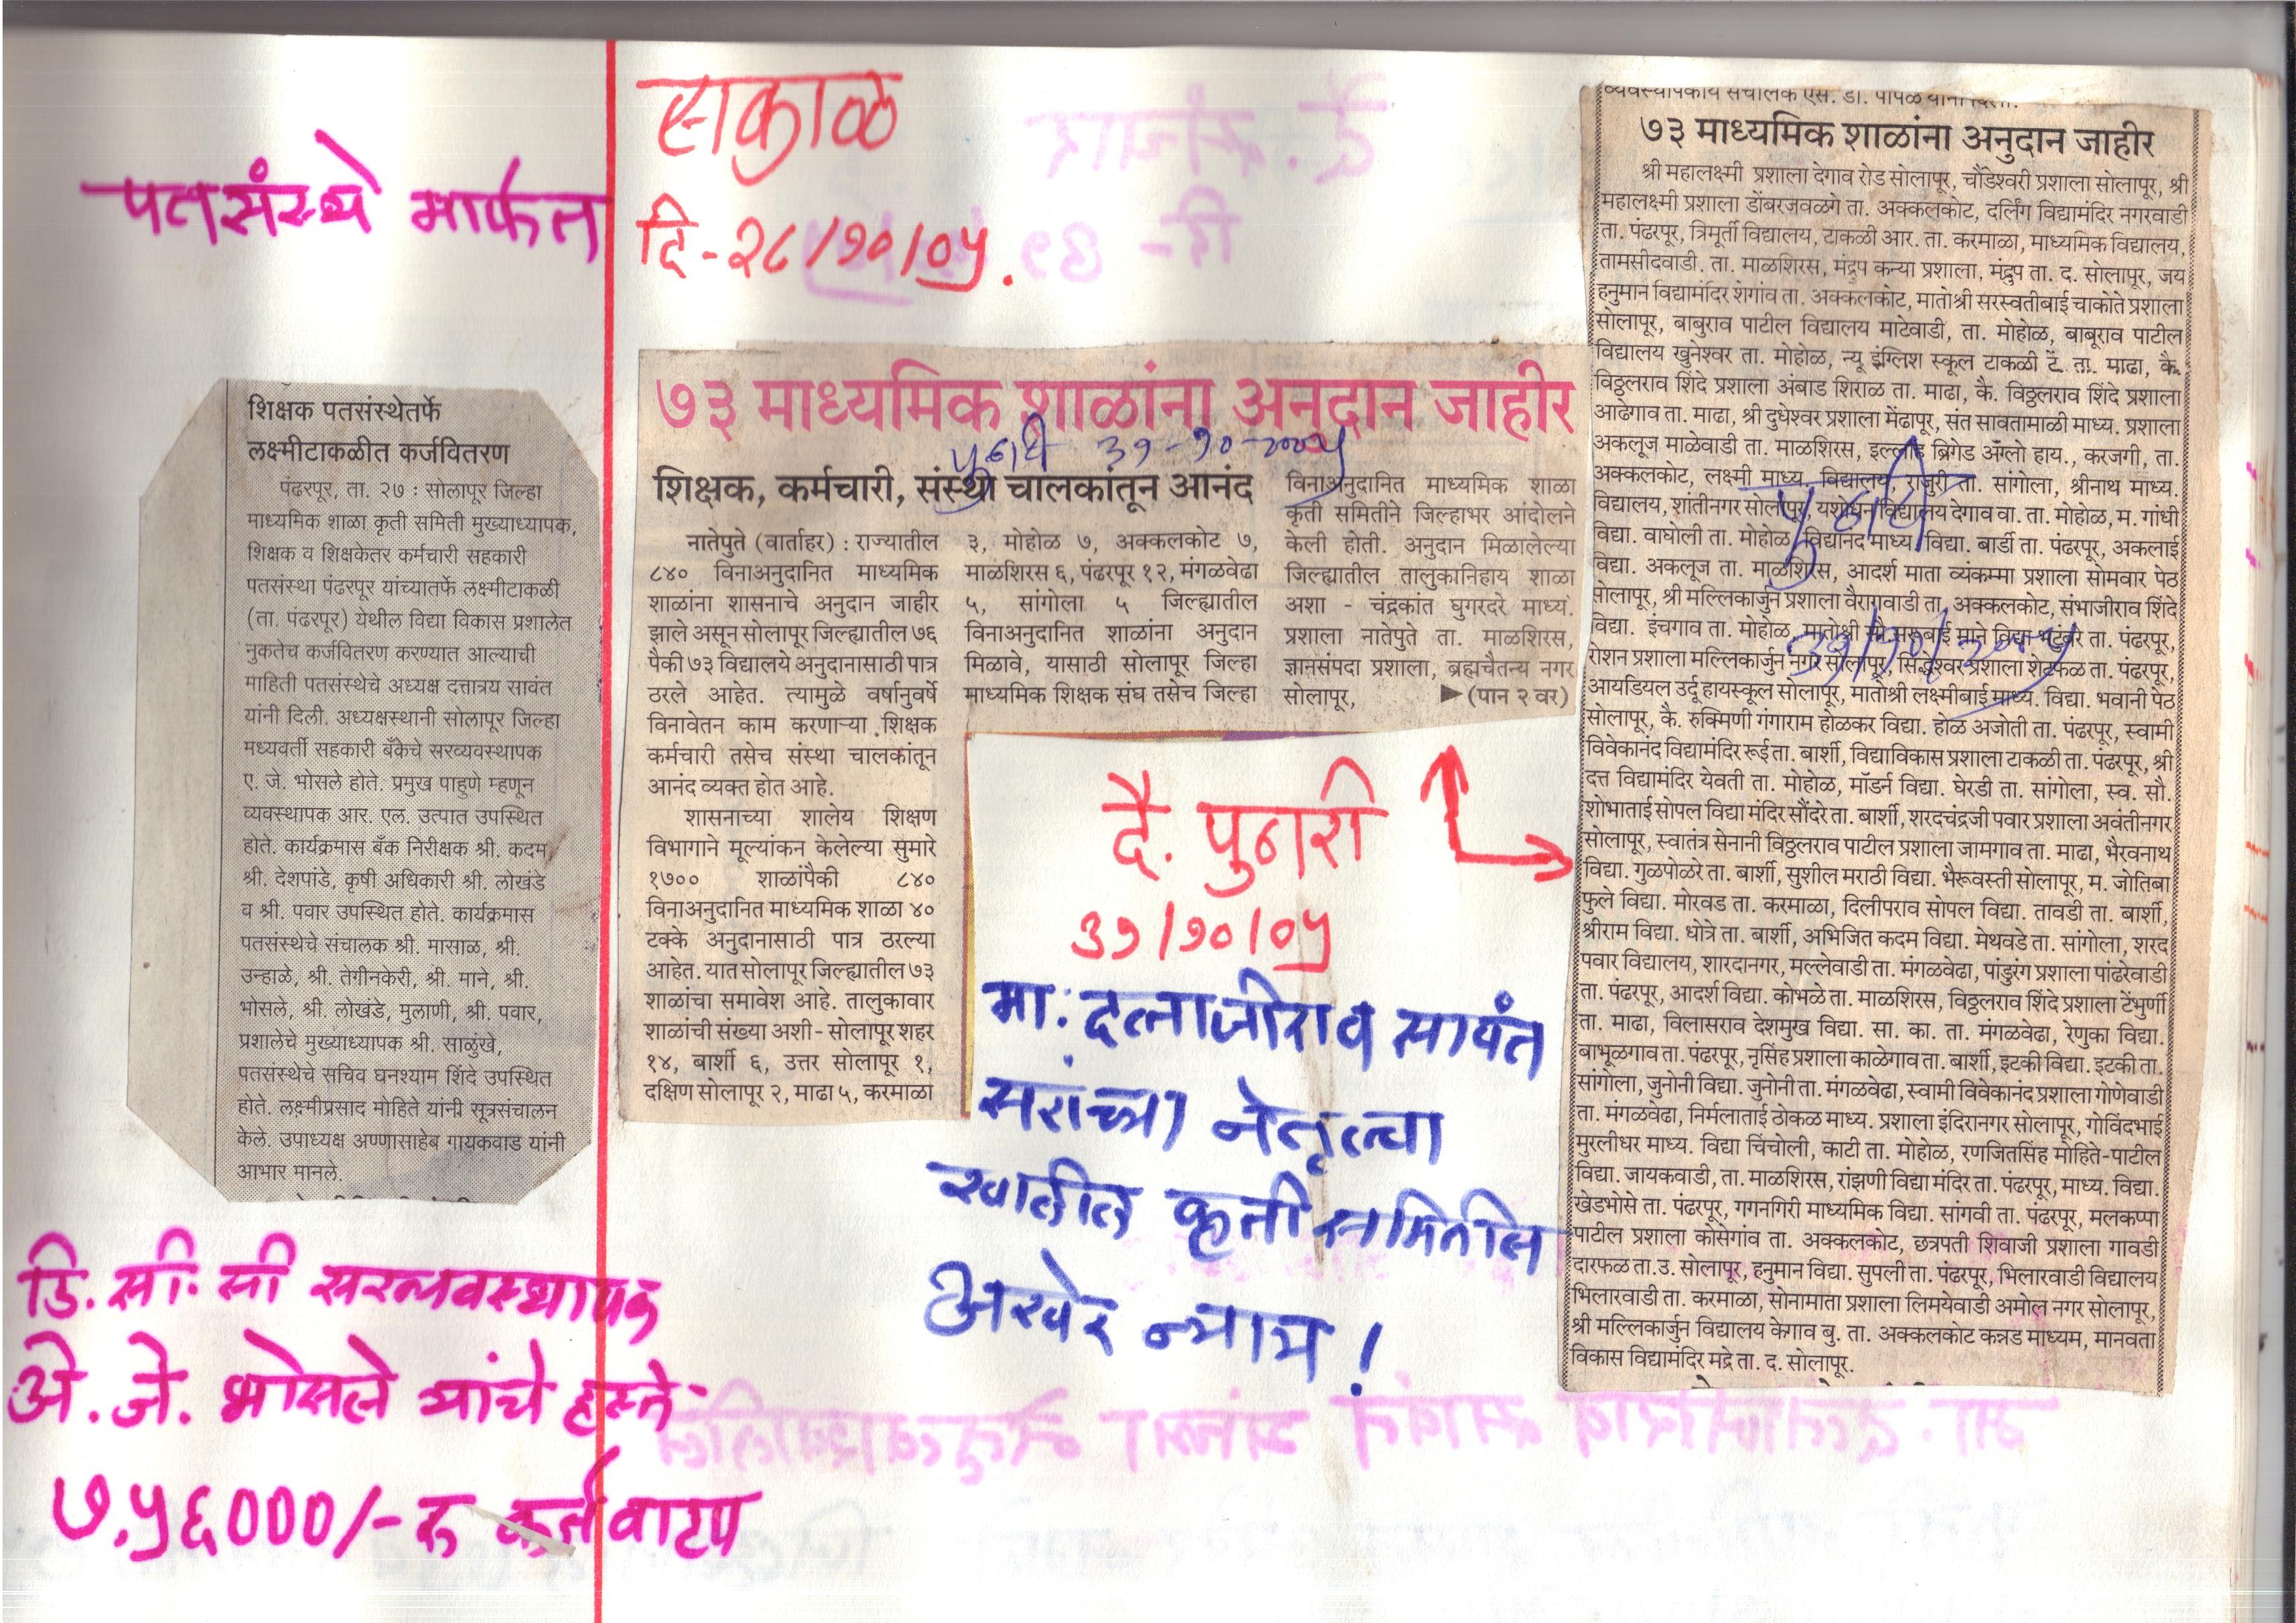 पतसंस्थे मार्फत
सकाळ
दि-२८/१०/०५.
शिक्षक पतसंस्थेतर्फे
लक्ष्मीटाकळीत कर्जवितरण
पंढरपूर, ता. २७ : सोलापूर जिल्हा
माध्यमिक शाळा कृती समिती मुख्याध्यापक,
शिक्षक व शिक्षकेतर कर्मचारी सहकारी
पतसंस्था पंढरपूर यांच्यातर्फे लक्ष्मीटाकळी
(ता. पंढरपूर) येथील विद्या विकास प्रशालेत
नुकतेच कर्जवितरण करण्यात आल्याची
माहिती पतसंस्थेचे अध्यक्ष दत्तात्रय सावंत
यांनी दिली. अध्यक्षस्थानी सोलापूर जिल्हा
मध्यवर्ती सहकारी बँकेचे सरव्यवस्थापक
ए. जे. भोसले होते. प्रमुख पाहुणे म्हणून
व्यवस्थापक आर. एल. उत्पात उपस्थित
होते. कार्यक्रमास बँक निरीक्षक श्री. कदम,
श्री. देशपांडे, कृषी अधिकारी श्री. लोखंडे
व श्री. पवार उपस्थित होते. कार्यक्रमास
पतसंस्थेचे संचालक श्री. मासाळ, श्री.
उन्हाळे, श्री. तेगीनकेरी, श्री. माने, श्री.
भोसले, श्री. लोखंडे, मुलाणी, श्री. पवार,
प्रशालेचे मुख्याध्यापक श्री. साळुंखे,
पतसंस्थेचे सचिव घनश्याम शिंदे उपस्थित
होते. लक्ष्मीप्रसाद मोहिते यांनी सूत्रसंचालन
केले. उपाध्यक्ष अण्णासाहेब गायकवाड यांनी
आभार मानले.
डि. सी. सी सरव्यवस्थापक
अे. जे. भोसले यांचे हस्ते
७,५६०००/- रु कर्जवाटप
७३ माध्यमिक शाळांना अनुदान जाहीर
पुढारी ३१-१०-२००५
शिक्षक, कर्मचारी, संस्था चालकांतून आनंद
नातेपुते (वार्ताहर) : राज्यातील
८४० विनाअनुदानित माध्यमिक
शाळांना शासनाचे अनुदान जाहीर
झाले असून सोलापूर जिल्ह्यातील ७६
पैकी ७३ विद्यालये अनुदानासाठी पात्र
ठरले आहेत. त्यामुळे वर्षानुवर्षे
विनावेतन काम करणाऱ्या शिक्षक
कर्मचारी तसेच संस्था चालकांतून
आनंद व्यक्त होत आहे.
शासनाच्या शालेय शिक्षण
विभागाने मूल्यांकन केलेल्या सुमारे
१७०० शाळांपैकी ८४०
विनाअनुदानित माध्यमिक शाळा ४०
टक्के अनुदानासाठी पात्र ठरल्या
आहेत. यात सोलापूर जिल्ह्यातील ७३
शाळांचा समावेश आहे. तालुकावार
शाळांची संख्या अशी - सोलापूर शहर
१४, बार्शी ६, उत्तर सोलापूर १,
दक्षिण सोलापूर २, माढा ५, करमाळा
३, मोहोळ ७, अक्कलकोट ७,
माळशिरस ६, पंढरपूर १२, मंगळवेढा
५, सांगोला ५ जिल्ह्यातील
विनाअनुदानित शाळांना अनुदान
मिळावे, यासाठी सोलापूर जिल्हा
माध्यमिक शिक्षक संघ तसेच जिल्हा
विनाअनुदानित माध्यमिक शाळा
कृती समितीने जिल्हाभर आंदोलने
केली होती. अनुदान मिळालेल्या
जिल्ह्यातील तालुकानिहाय शाळा
अशा - चंद्रकांत घुगरदरे माध्यं.
प्रशाला नातेपुते ता. माळशिरस,
ज्ञानसंपदा प्रशाला, ब्रह्मचैतन्य नगर
सोलापूर, ►(पान २ वर)
दै. पुढारी
३१/१०/०५
मा. दत्ताजीराव सावंत
सरांच्या नेतृत्वा
खालील कृती समितीस
अखेर न्याय !
व्यवस्थापकीय संचालक एस. डी. पापळ यांनी दिली.
७३ माध्यमिक शाळांना अनुदान जाहीर
श्री महालक्ष्मी प्रशाला देगाव रोड सोलापूर, चौंडेश्वरी प्रशाला सोलापूर, श्री
महालक्ष्मी प्रशाला डोंबरजवळगे ता. अक्कलकोट, दर्लिंग विद्यामंदिर नगरवाडी
ता. पंढरपूर, त्रिमूर्ती विद्यालय, टाकळी आर. ता. करमाळा, माध्यमिक विद्यालय,
तामसीदवाडी. ता. माळशिरस, मंद्रुप कन्या प्रशाला, मंद्रुप ता. द. सोलापूर, जय
हनुमान विद्यामंदिर शेगांव ता. अक्कलकोट, मातोश्री सरस्वतीबाई चाकोते प्रशाला
सोलापूर, बाबुराव पाटील विद्यालय माटेवाडी, ता. मोहोळ, बाबूराव पाटील
विद्यालय खुनेश्वर ता. मोहोळ, न्यू इंग्लिश स्कूल टाकळी टें. ता. माढा, कै.
विठ्ठलराव शिंदे प्रशाला अंबाड शिराळ ता. माढा, कै. विठ्ठलराव शिंदे प्रशाला
आढेगाव ता. माढा, श्री दुधेश्वर प्रशाला मेंढापूर, संत सावतामाळी माध्य. प्रशाला
अकलूज माळेवाडी ता. माळशिरस, इल्लाह ब्रिगेड अँग्लो हाय., करजगी, ता.
अक्कलकोट, लक्ष्मी माध्य. विद्यालय, राजुरी ता. सांगोला, श्रीनाथ माध्य.
विद्यालय, शांतीनगर सोलापूर, यशोधन विद्यालय देगाव वा. ता. मोहोळ, म. गांधी
विद्या. वाघोली ता. मोहोळ, विद्यानंद माध्य. विद्या. बार्डी ता. पंढरपूर, अकलाई
विद्या. अकलूज ता. माळशिरस, आदर्श माता व्यंकम्मा प्रशाला सोमवार पेठ
सोलापूर, श्री मल्लिकार्जुन प्रशाला वैरागवाडी ता. अक्कलकोट, संभाजीराव शिंदे
विद्या. इंचगाव ता. मोहोळ, मातोश्री सौ. सरूबाई माने विद्या. भटुंबरे ता. पंढरपूर,
रोशन प्रशाला मल्लिकार्जुन नगर सोलापूर, सिद्धेश्वर प्रशाला शेटफळ ता. पंढरपूर,
आयडियल उर्दू हायस्कूल सोलापूर, मातोश्री लक्ष्मीबाई माध्य. विद्या. भवानी पेठ
सोलापूर, कै. रुक्मिणी गंगाराम होळकर विद्या. होळ अजोती ता. पंढरपूर, स्वामी
विवेकानंद विद्यामंदिर रूई ता. बार्शी, विद्याविकास प्रशाला टाकळी ता. पंढरपूर, श्री
दत्त विद्यामंदिर येवती ता. मोहोळ, मॉडर्न विद्या. घेरडी ता. सांगोला, स्व. सौ.
शोभाताई सोपल विद्या मंदिर सौंदरे ता. बार्शी, शरदचंद्रजी पवार प्रशाला अवंतीनगर
सोलापूर, स्वातंत्र सेनानी विठ्ठलराव पाटील प्रशाला जामगाव ता. माढा, भैरवनाथ
विद्या. गुळपोळरे ता. बार्शी, सुशील मराठी विद्या. भैरूवस्ती सोलापूर, म. जोतिबा
फुले विद्या. मोरवड ता. करमाळा, दिलीपराव सोपल विद्या. तावडी ता. बार्शी,
श्रीराम विद्या. धोत्रे ता. बार्शी, अभिजित कदम विद्या. मेथवडे ता. सांगोला, शरद
पवार विद्यालय, शारदानगर, मल्लेवाडी ता. मंगळवेढा, पांडुरंग प्रशाला पांढरेवाडी
ता. पंढरपूर, आदर्श विद्या. कोभळे ता. माळशिरस, विठ्ठलराव शिंदे प्रशाला टेंभुर्णी
ता. माढा, विलासराव देशमुख विद्या. सा. का. ता. मंगळवेढा, रेणुका विद्या.
बाभूळगाव ता. पंढरपूर, नृसिंह प्रशाला काळेगाव ता. बार्शी, इटकी विद्या. इटकी ता.
सांगोला, जुनोनी विद्या. जुनोनी ता. मंगळवेढा, स्वामी विवेकानंद प्रशाला गोणेवाडी
ता. मंगळवेढा, निर्मलाताई ठोकळ माध्य. प्रशाला इंदिरानगर सोलापूर, गोविंदभाई
मुरलीधर माध्य. विद्या चिंचोली, काटी ता. मोहोळ, रणजितसिंह मोहिते-पाटील
विद्या. जायकवाडी, ता. माळशिरस, रांझणी विद्या मंदिर ता. पंढरपूर, माध्य. विद्या.
खेडभोसे ता. पंढरपूर, गगनगिरी माध्यमिक विद्या. सांगवी ता. पंढरपूर, मलकप्पा
पाटील प्रशाला कोसेगांव ता. अक्कलकोट, छत्रपती शिवाजी प्रशाला गावडी
दारफळ ता.उ. सोलापूर, हनुमान विद्या. सुपली ता. पंढरपूर, भिलारवाडी विद्यालय
भिलारवाडी ता. करमाळा, सोनामाता प्रशाला लिमयेवाडी अमोल नगर सोलापूर,
श्री मल्लिकार्जुन विद्यालय केगाव बु. ता. अक्कलकोट कन्नड माध्यम, मानवता
विकास विद्यामंदिर मद्रे ता. द. सोलापूर.
पुढारी
३१/१०/२००५